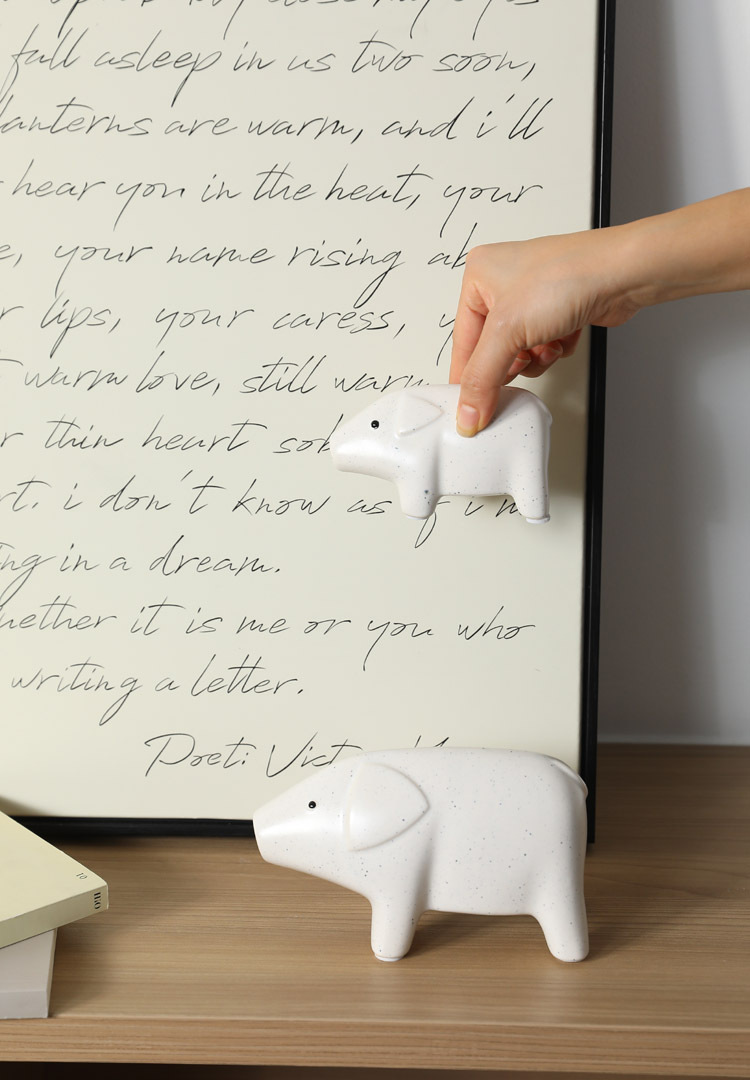 fall asleep in us two soon,
lanterns are warm, and i'll
hear you in the heat, your
your name rising
lips, your caress,
warm love, still warm
thin heart
i don't know as if i'm
in a dream.
it is me or you who
writing a letter.
Poet:
01